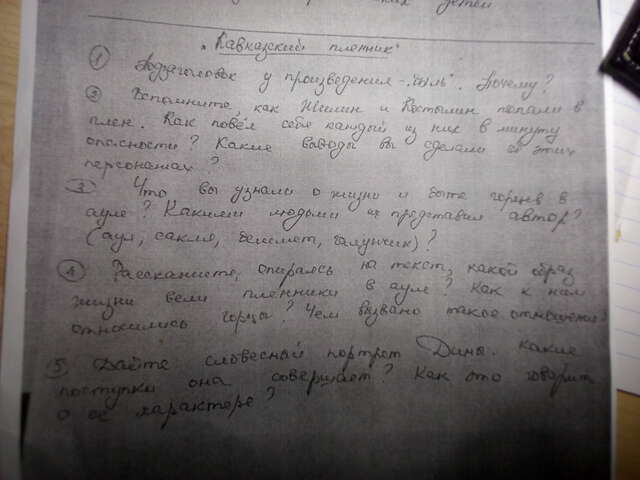 детей
"Кавказский пленник"
① Подзаголовок у произведения - "быль". Почему?
② Вспомните, как Жилин и Костылин попали в
плен. Как повёл себя каждый из них в минуту
опасности? Какие выводы вы сделали об этих
персонажах?
③ Что вы узнали о жизни и быте горцев в
ауле? Какими людьми их представил автор?
(аул, сакля, бешмет, галунчик)?
④ Расскажите, опираясь на текст, какой образ
жизни вели пленники в ауле? Как к ним
относились горцы? Чем вызвано такое отношение?
5. Дайте словесный портрет Дины. Какие
поступки она совершает? Как это говорит
о её характере?